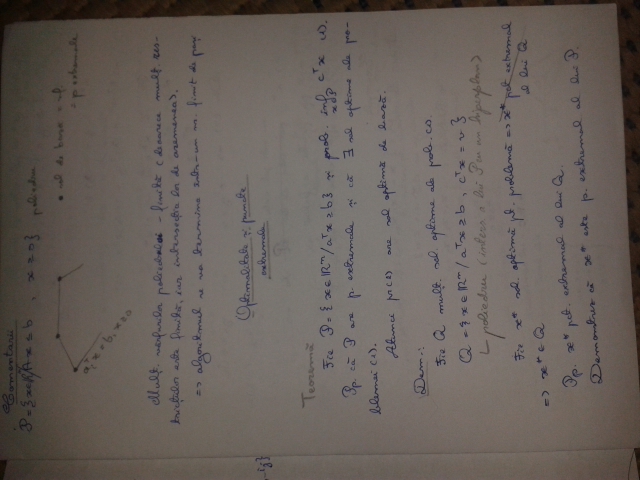 Comentarii
P = {x / Ax ≤ b, x ≥ 0} poliedru
sol de bază = vf.
= p extremale
Mulț. muchiilor poliedrului - finită (deoarece mulț. res-
tricțiilor este finită, iar intersecția lor de asemenea).
=> algoritmul se va termina într-un nr. finit de pași
Optimalitate și puncte
extremale
Teoremă
Fie P = {x ∈ ℝⁿ / aᵀx ≥ b} și prob. inf cᵀx (1).
x∈P
Pp. că P are p. extremale și că ∃ sol optime ale pro-
blemei (1).
Atunci pr (1) are sol optimă de bază.
Dem.:
Fie Q mulț. sol optime ale prob. (1).
Q = {x ∈ ℝⁿ / aᵀx ≥ b, cᵀx = v}
poliedru (inters. a lui P cu un hiperplan)
Fie x* sol. optimă pt. problemă => x* pct extremal
al lui Q
=> x* ∈ Q
Pp. x* pct. extremal al lui Q.
Demonstrăm că x* este p. extremal al lui P.